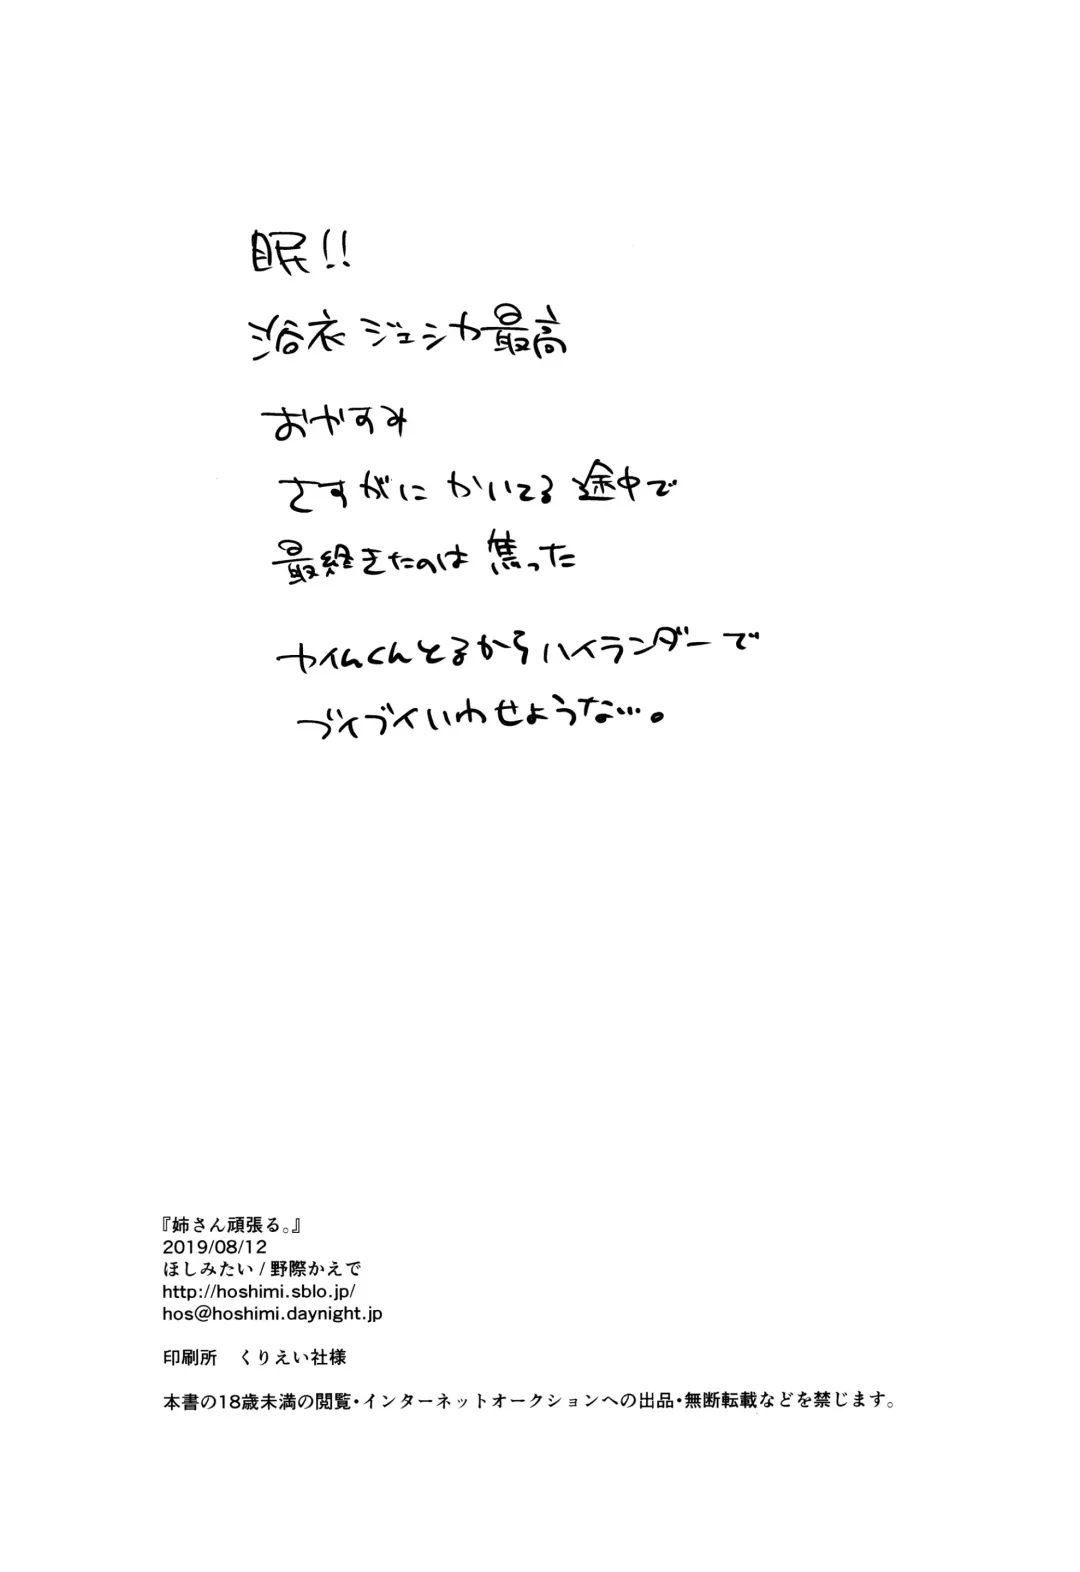 眠!!
浴衣ジェシカ最高
おやすみ
さすがに かいてる 途中で
最終きたのは 焦った
カイムくんとるからハイランダーで
ブイブイいわせような…。
『姉さん頑張る。』
2019/08/12
ほしみたい / 野際かえで
http://hoshimi.sblo.jp/
hos@hoshimi.daynight.jp
印刷所　くりえい社様
本書の18歳未満の閲覧・インターネットオークションへの出品・無断転載などを禁じます。